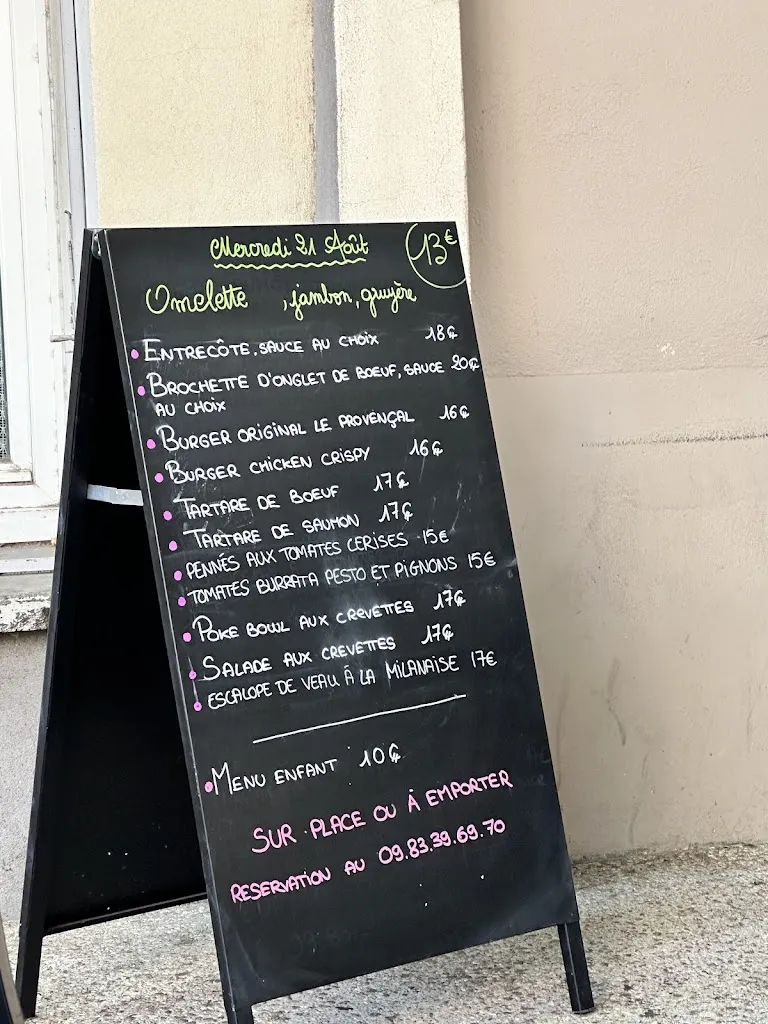 Mercredi 21 Août
13€
Omelette , jambon, gruyère
• ENTRECÔTE, SAUCE AU CHOIX 18€
• BROCHETTE D'ONGLET DE BOEUF, SAUCE 20€
AU CHOIX
• BURGER ORIGINAL LE PROVENÇAL 16€
• BURGER CHICKEN CRISPY 16€
• TARTARE DE BOEUF 17€
• TARTARE DE SAUMON 17€
• PENNÉS AUX TOMATES CERISES 15€
• TOMATES BURRATA PESTO ET PIGNONS 15€
• POKE BOWL AUX CREVETTES 17€
• SALADE AUX CREVETTES 17€
• ESCALOPE DE VEAU À LA MILANAISE 17€
• MENU ENFANT 10€
SUR PLACE OU À EMPORTER
RESERVATION AU 09.83.39.69.70